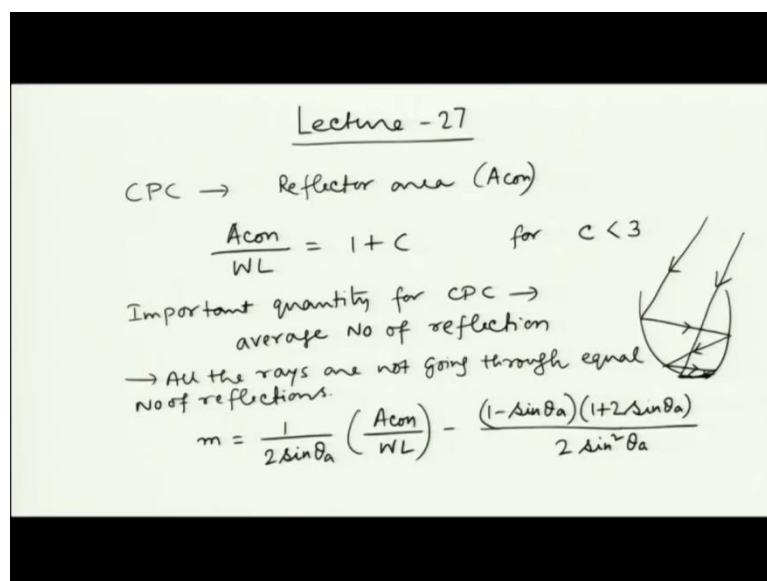 Lecture - 27
CPC → Reflector area (Acon)
Acon/WL = 1 + C for C < 3
Important quantity for CPC →
average No of reflection
→ All the rays are not going through equal
No of reflections.
m = 1/(2 sin θa) (Acon/WL) - (1 - sin θa)(1 + 2 sin θa)/(2 sin² θa)